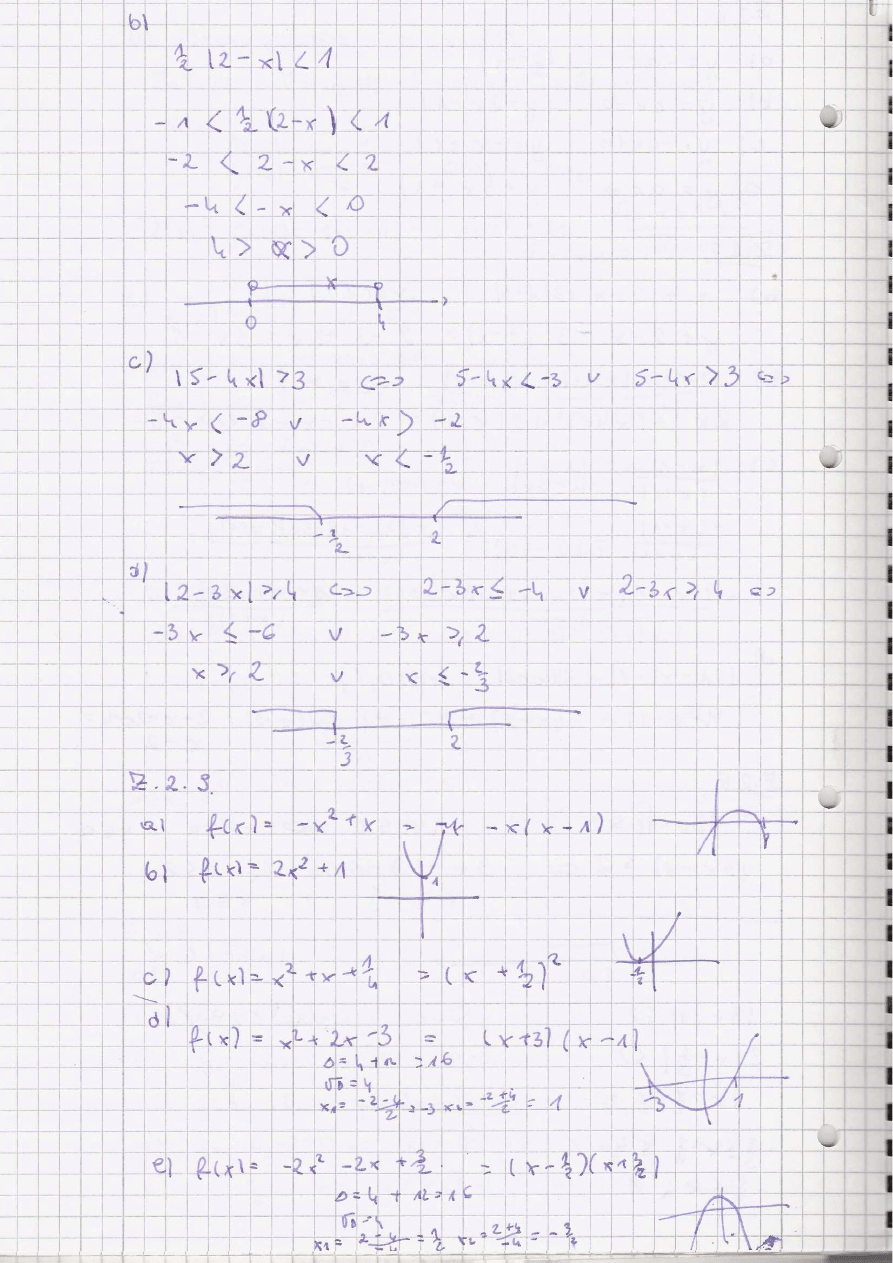 b)
½ |2-x| < 1
-1 < ½(2-x) < 1
-2 < 2-x < 2
-4 < -x < 0
4 > x > 0
x
0 4
c)
|5-4x| > 3 <=> 5-4x < -3 v 5-4x > 3 <=>
-4x < -8 v -4x > -2
x > 2 v x < -½
-½ 2
d)
|2-3x| ≥ 4 <=> 2-3x ≤ -4 v 2-3x ≥ 4 <=>
-3x ≤ -6 v -3x ≥ 2
x ≥ 2 v x ≤ -2/3
-2/3 2
Z.2.9.
a) f(x) = -x² + x = -x(x-1)
b) f(x) = 2x² + 1
1
c) f(x) = x² + x + ¼ = (x + ½)²
½
d)
f(x) = x² + 2x - 3 = (x+3)(x-1)
Δ = 4 + 12 = 16
√Δ = 4
x₁ = (-2-4)/2 = -3 x₂ = (-2+4)/2 = 1
-3 1
e) f(x) = -2x² - 2x + 3/2 = (x - ½)(x + 3/2)
Δ = 4 + 12 = 16
√Δ = 4
x₁ = (2-4)/-4 = ½ x₂ = (2+4)/-4 = -3/2